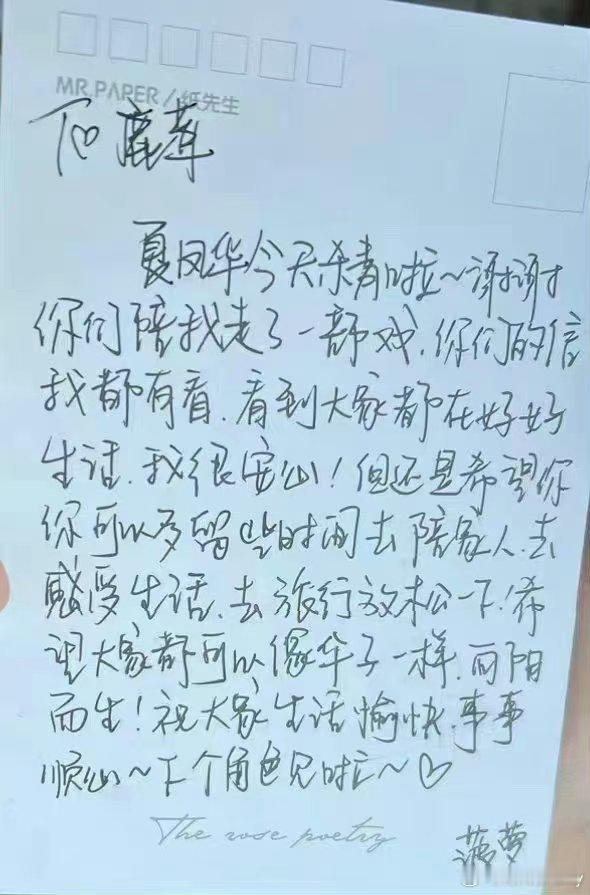 MR.PAPER/纸先生
TO 鹿茸
夏凤华今天杀青啦~谢谢
你们陪我走了一部戏.你们的信
我都有看.看到大家都在好好
生活.我很安心！但还是希望你
你可以多留些时间去陪家人.去
感受生活.去旅行放松一下！希
望大家都可以像华子一样.向阳
而生！祝大家生活愉快.事事
顺心~下个角色见啦~♡
The rose poetry
菠萝